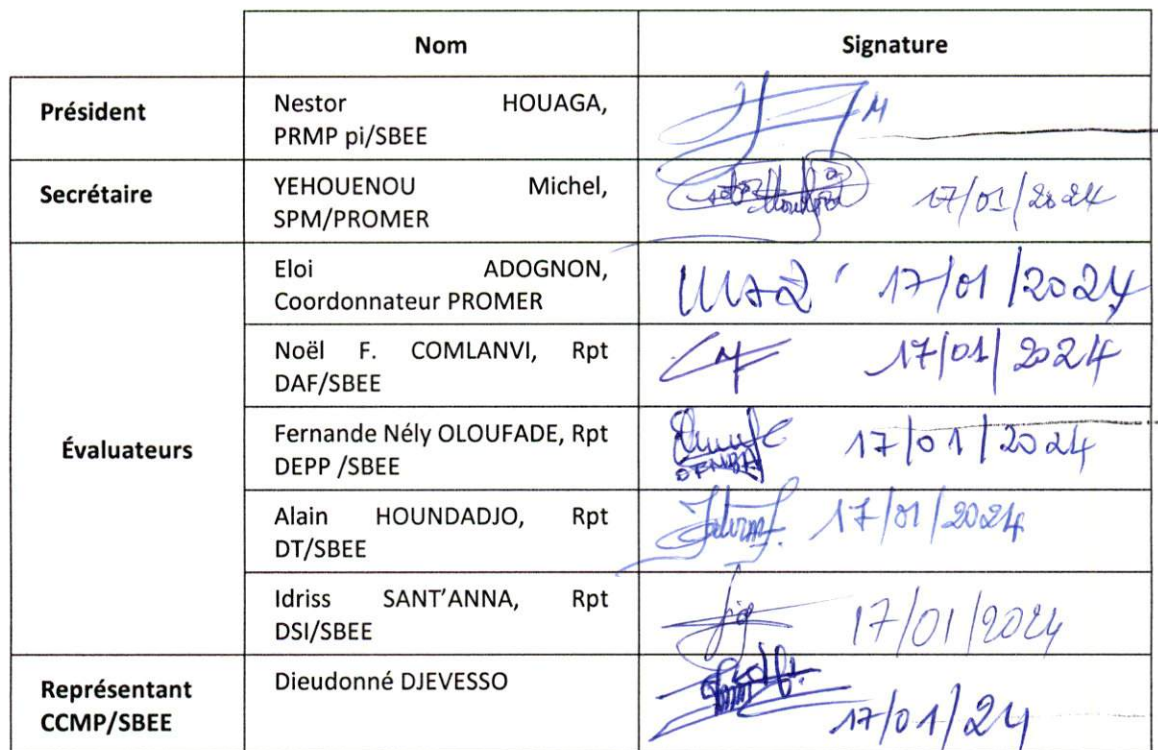 Nom Signature
Président
Nestor HOUAGA,
PRMP pi/SBEE
Secrétaire
YEHOUENOU Michel,
SPM/PROMER
17/01/2024
Évaluateurs
Eloi ADOGNON,
Coordonnateur PROMER
17/01/2024
Noël F. COMLANVI, Rpt
DAF/SBEE
17/01/2024
Fernande Nély OLOUFADE, Rpt
DEPP /SBEE
17/01/2024
Alain HOUNDADJO, Rpt
DT/SBEE
17/01/2024
Idriss SANT’ANNA, Rpt
DSI/SBEE
17/01/2024
Représentant
CCMP/SBEE
Dieudonné DJEVESSO
17/01/24